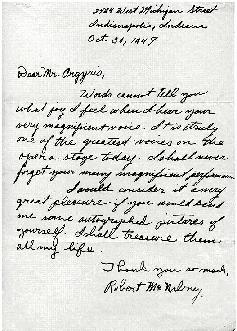 West Michigan Street
Indianapolis, Indiana
Oct. 31, 1947
Dear Mr.
Words cannot tell you
what joy I feel when I hear your
very magnificent voice. It is truly
one of the greatest voices on the
opera stage today. I shall never
forget your many magnificent
I would consider it a very
great pleasure if you would send
me some autographed pictures of
yourself. I shall treasure them
all my life.
Thank you so much,
Robert